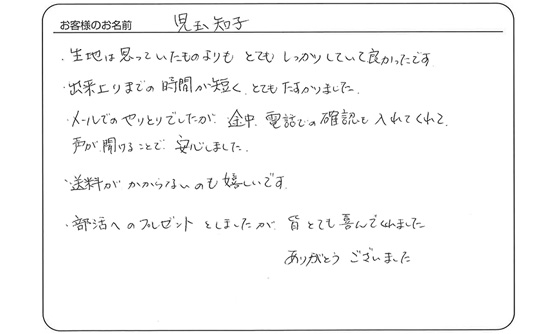 お客様のお名前 児玉知子
・生地は思っていたものよりも とても しっかりしていて良かったです
・出来上りまでの時間が短く、とてもたすかりました。
・メールでのやりとりでしたが、途中、電話での確認も入れてくれて、
声が聞けることで、安心しました。
・送料がかからないのも嬉しいです。
・部活へのプレゼントとしましたが、皆とても喜んでくれました
ありがとう ございました